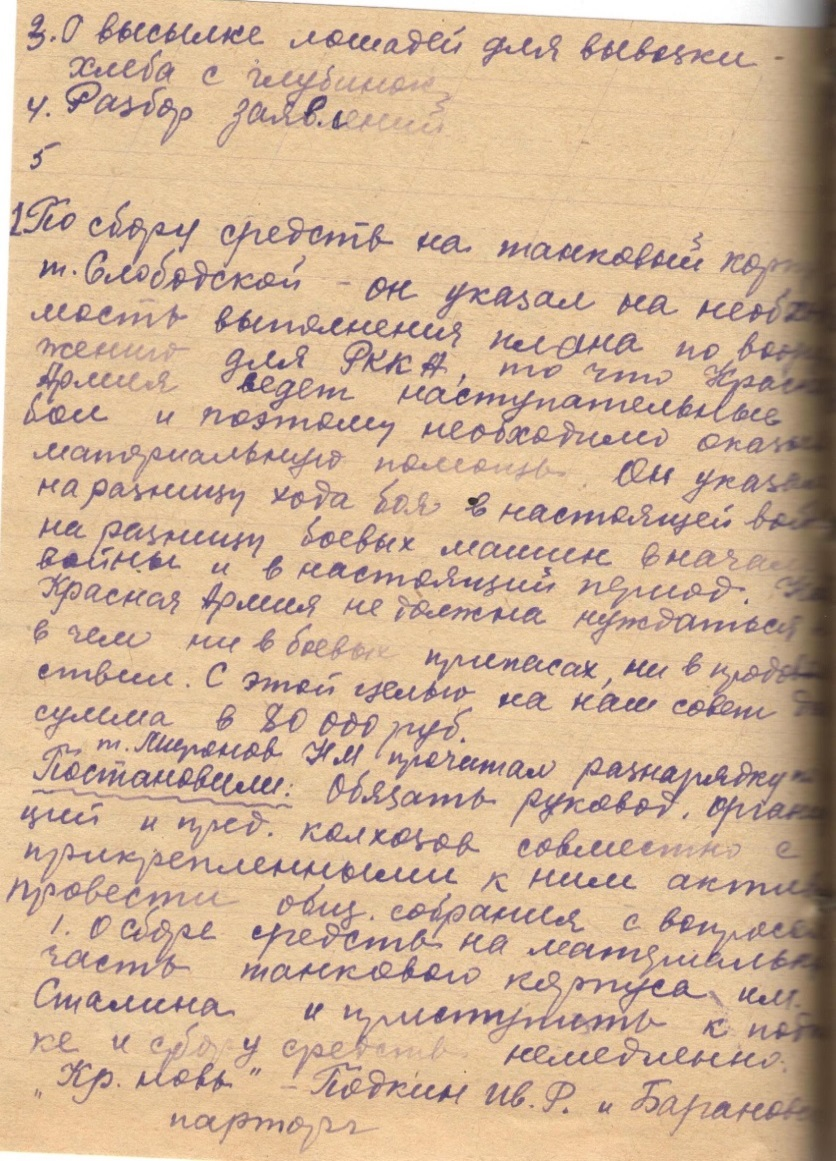 3. О высылке лошадей для вывозки
хлеба с глубинок
4. Разбор заявлений
5
1 По сбору средств на танковый корпу
т. Слободской – он указал на необхо
мость выполнения плана по воору
жению для РККА, то что Красн
Армия ведет наступательные
бои и поэтому необходимо оказы
материальную помощь. Он указал
на разницу хода боя в настоящей вой
на разницу боевых машин в начал
войны и в настоящий период.
Красная Армия не должна нуждаться
в чем ни в боевых припасах, ни в продов
ствии. С этой целью на наш совет
сумма в 80 000 руб.
т. Миронов НМ прочитал разнарядку
Постановили: Обязать руковод. органи
ций и пред. колхозов совместно с
прикрепленными к ним актив
провести общ. собрания с вопросом
1. О сборе средств на материальн
часть танкового корпуса им.
Сталина и приступить к подп
ке и сбору средств немедленно.
„Кр. новь" – Подкин Ив. Р. и Баранов
парторг